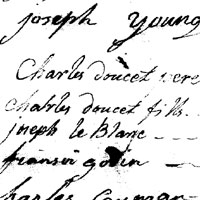 joseph young
Charles doucet pere
charles doucet fils
joseph le Blanc
fransoi godin
harles